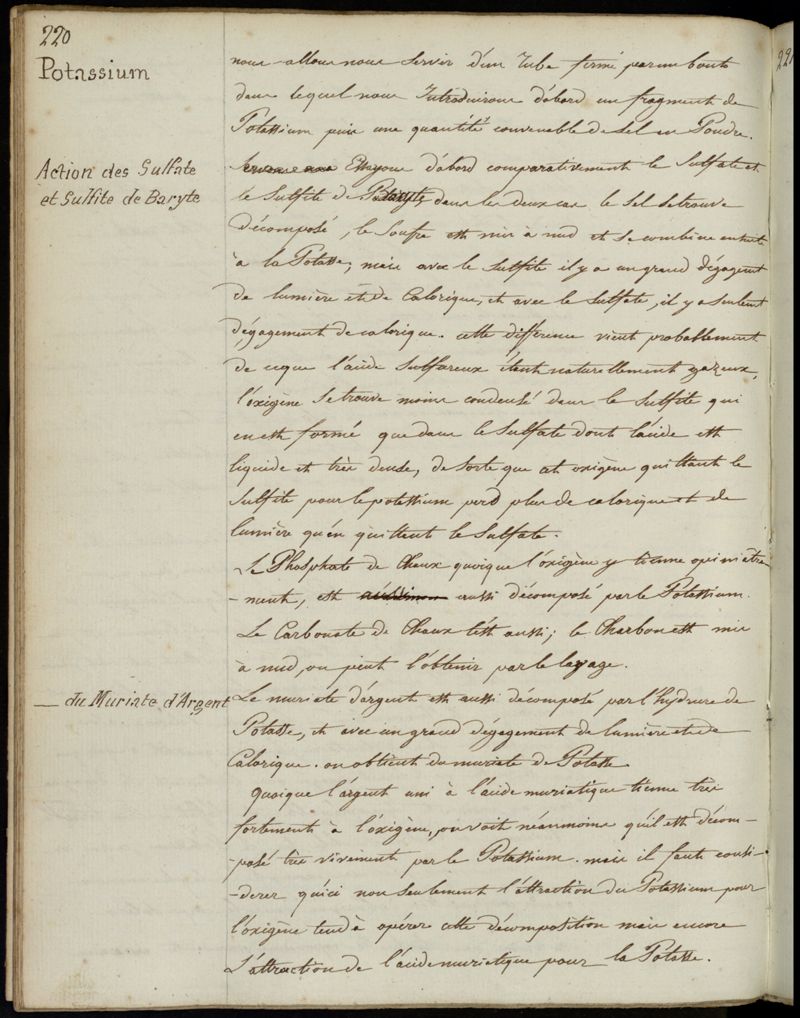 220
Potassium
nous allons nous servir d'un tube fermé par un bout
dans lequel nous Introduirons d'abord un fragment de
Potassium puis une quantité convenable de sel en Poudre.
Action des Sulfate
et Sulfite de Baryte
Essayons d'abord comparativement le Sulfate et
le Sulfite de Baryte, dans les deux cas le sel se trouve
décomposé, le Soufre est mis à nud et se combine ensuite
à la Potasse; mais avec le Sulfite il y a un grand dégagemt
de lumière et de Calorique, et avec le Sulfate, il y a seulemt
dégagement de calorique. cette différence vient probablement
de ceque l'acide Sulfureux étant naturellement gazeux,
l'oxigène se trouve moins condensé dans le Sulfite qui
en est formé que dans le Sulfate dont l'acide est
liquide et très dense, de sorte que cet oxigène quittant le
Sulfite pour le potassium perd plus de calorique et de
lumière qu'en quittant le Sulfate.
Le Phosphate de Chaux quoique l'oxigène y tienne opiniatre
-ment, est aussi décomposé par le Potassium.
Le Carbonate de Chaux l'est aussi; le Charbon est mis
à nud, on peut l'obtenir par le lavage.
— du Muriate d'Argent
Le muriate d'argent est aussi décomposé par l'hydrure de
Potasse, et avec un grand dégagement de lumière et de
Calorique. on obtient du muriate de Potasse
quoique l'argent uni à l'acide muriatique tienne très
fortement à l'oxigène, on voit néanmoins qu'il est décom-
-posé très vivement par le Potassium. mais il faut consi-
-derer qu'ici non seulement l'attraction du Potassium pour
l'oxigène tend à opérer cette décomposition mais encore
L'attraction de l'acide muriatique pour la Potasse.
221